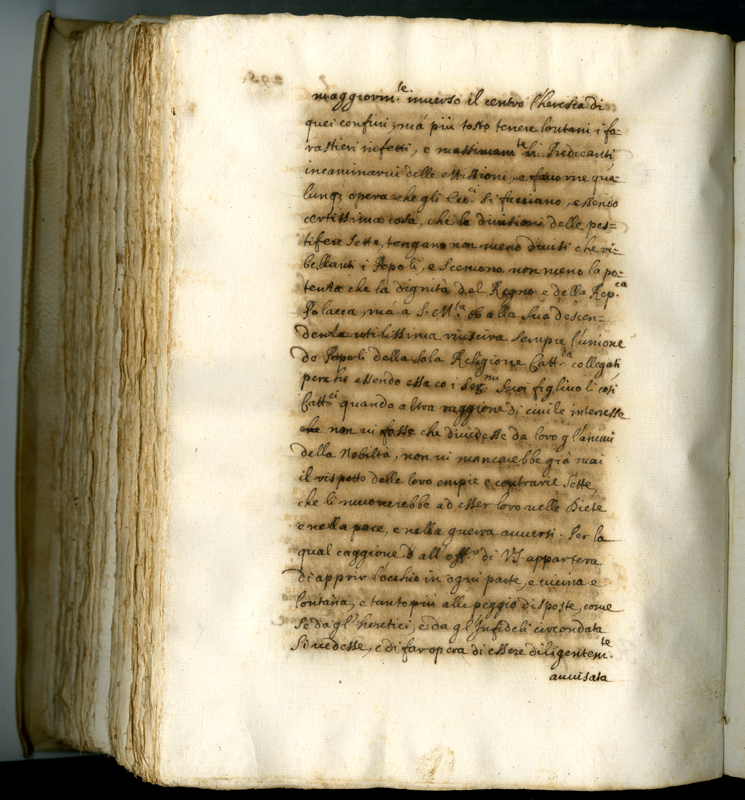 maggiorm.te inverso il centro l'heresia di
quei confini, mà più tosto tenere lontani i fo=
rastieri infetti, e massimam.te li Predicanti,
incaminarvi delle Missioni, e favorire qua=
lunq; opera che gli si facciano, essendo
certissima cosa, che le divisioni delle pes=
tifere sette, tengano non meno divisi che ri=
bellanti i Popoli, e scemono non meno la po=
tenza che la dignità del Regno e della Rep.ca
Polacca, mà à S. M.tà ò alla sua descen=
denza utilissima riuscira sempre l'unione
de Popoli della sola Religione Catt.ca collegati
perche essendo essa co i Ser.mi suoi figlivoli cosi
Catt.ci quando altra raggione di civile interesse
che non vi fosse che dividesse da loro gl'animi
della Nobiltà, non vi mancarebbe già mai
il rispetto delle loro empie e contrarie sette,
che li muoverebbe ad esser loro nelle Diete
e nella pace, e nella guerra avversi. Per la
qual caggione all'off.o di VS. appartera
di apprir l'occhio in ogni parte, e vicina e
lontana, e tanto più alle peggio disposte, come
se da gl'heretici, e da gl'Infideli circondata
si vedesse, e di far opera di essere diligentem.te
avvisata